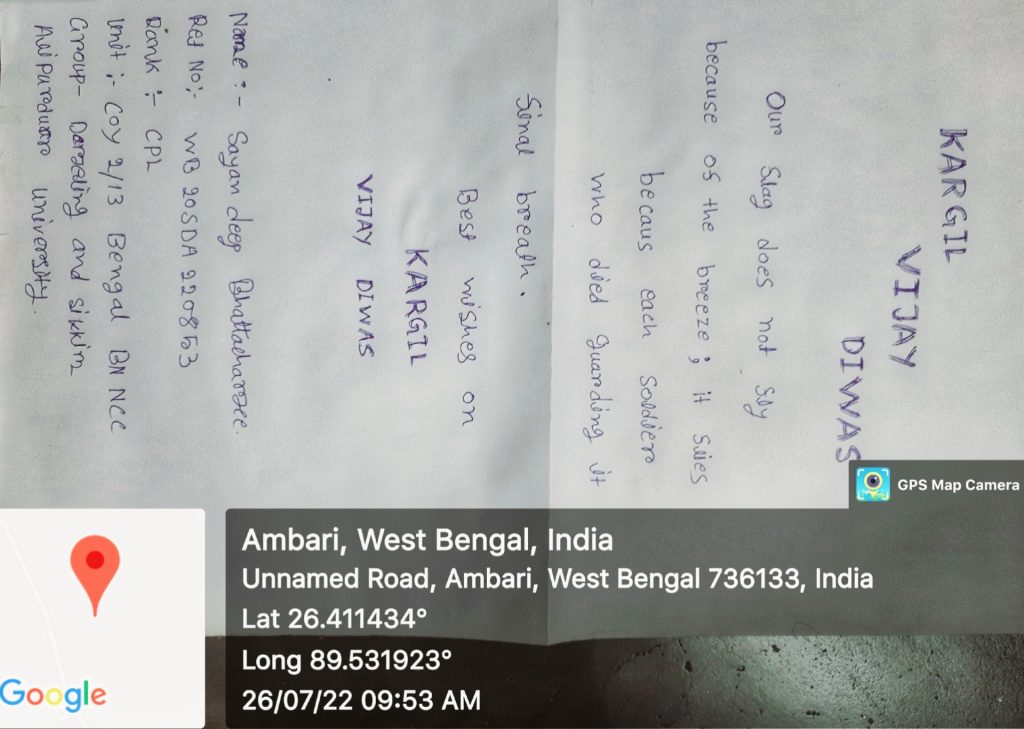 KARGIL
VIJAY
DIWAS
Our Slag does not Sly
because of the breeze; it Slies
becaus each Soldiers
who died guarding it
Sinal breath.
Best wishes on
KARGIL
VIJAY DIWAS
Name :- Sayan deep Bhattacharjee.
Ret No:- WB 20SDA 220853
Rank :- CPL
Unit :- Coy 2/13 Bengal BN NCC
Group- Darzeling and Sikkim
Alipurduar University.
GPS Map Camera
Ambari, West Bengal, India
Unnamed Road, Ambari, West Bengal 736133, India
Lat 26.411434°
Long 89.531923°
26/07/22 09:53 AM
Google